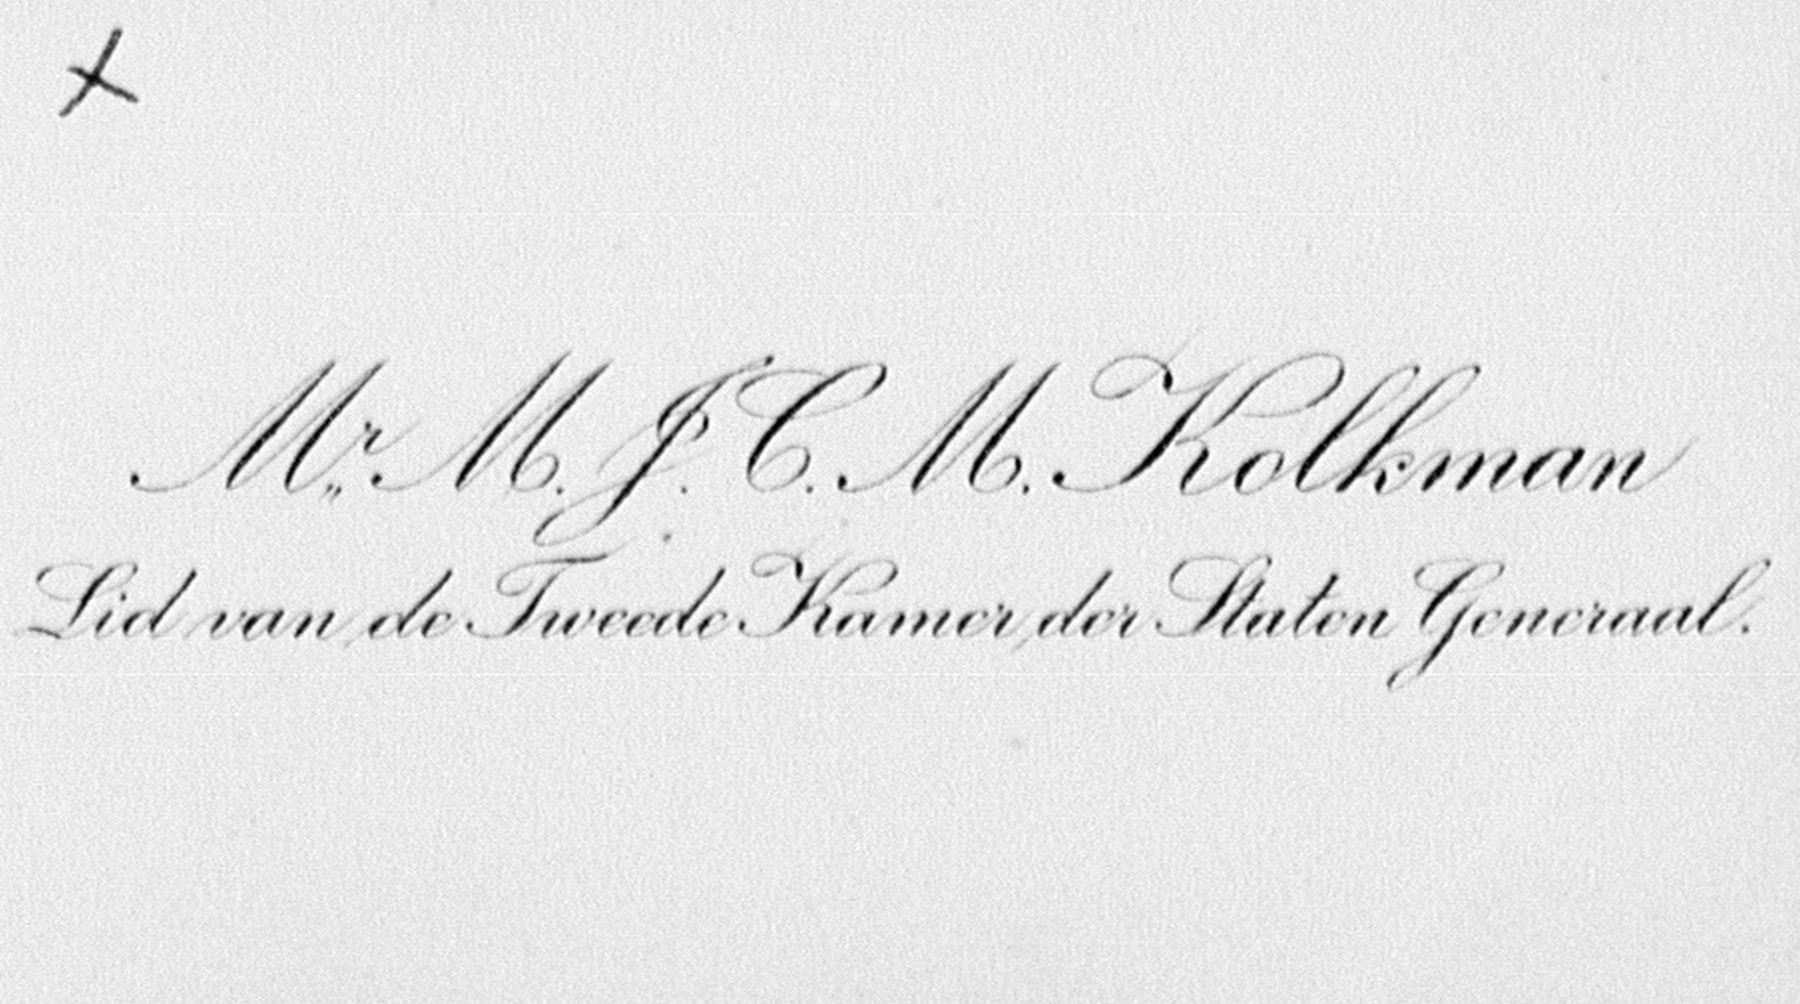 Mr. M. J. C. M. Kolkman
Lid van de Tweede Kamer der Staten Generaal.